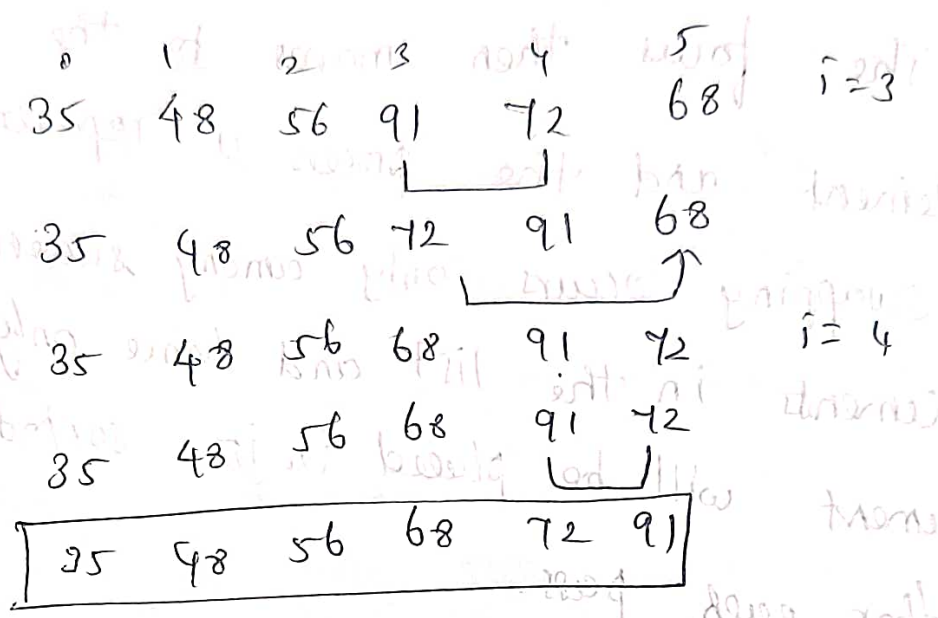 0 1 2 3 4 5
35 48 56 91 72 68 i=3
35 48 56 72 91 68
35 48 56 68 91 72 i=4
35 48 56 68 91 72
35 48 56 68 72 91